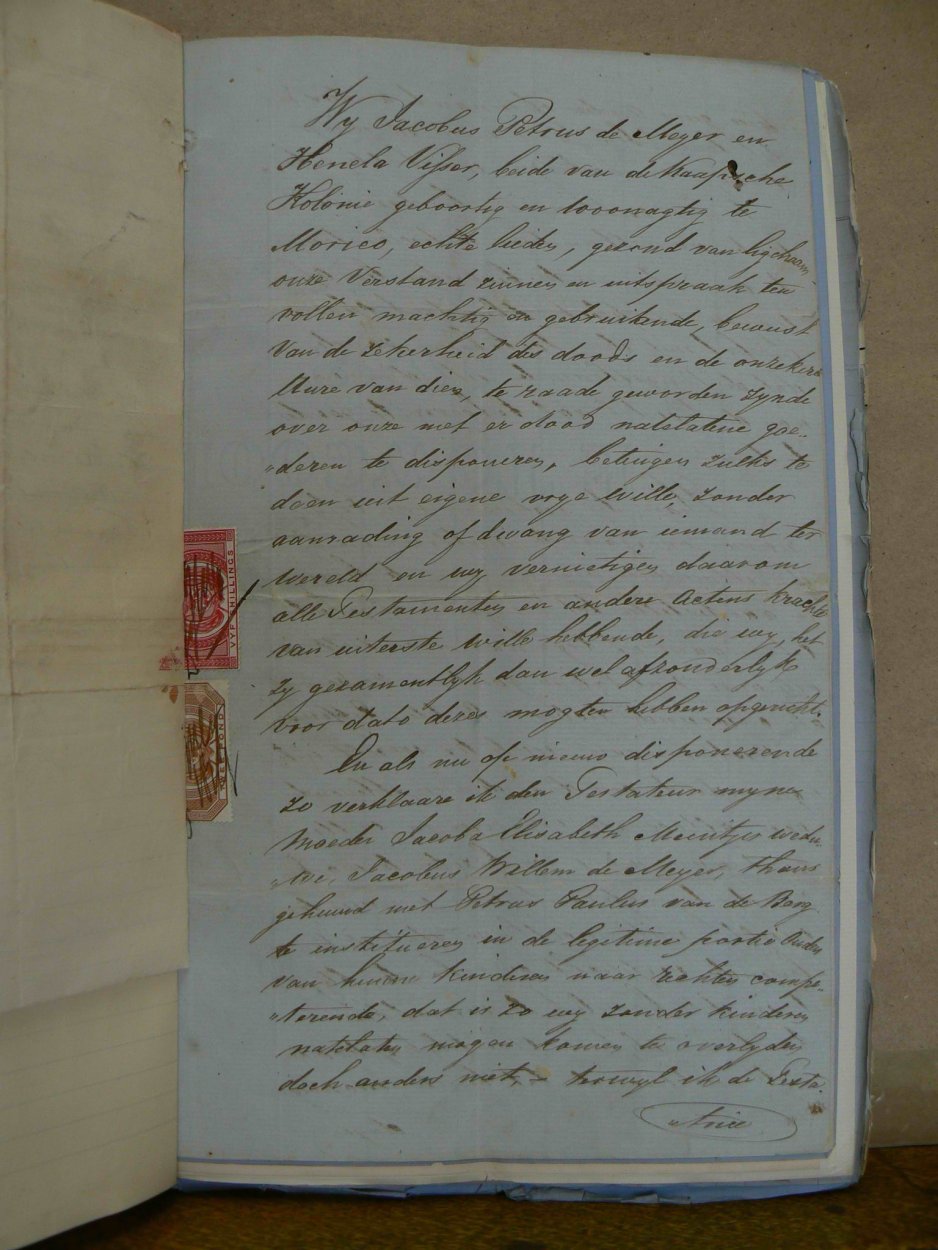 Wy Jacobus Petrus de Meyer en
Henela Visser, beide van de Kaapsche
Kolonie geboortig en woonagtig te
Morico, echte lieden, gezond van ligchaam
onze Verstand zinnen en uitspraak ten
vollen machtig en gebruikende, bewust
van de zekerheid des doods en de onzekere
Uure van dien, te raade geworden zynde
over onze met er dood natelatene goe-
"deren te disponeren, betuigen zulks te
doen uit eigene vrye wille, zonder
aanrading of dwang van iemand ter
wereld en wy vernietigen daarom
alle Testamenten en andere Actens kracht
van uiterste wille hebbende, die wy, het
zy gezamentlyk dan wel afzonderlyk
voor dato dezes mogten hebben opgericht.
En als nu op nieuw disponerende
zo verklaare ik den Testateur myne
Moeder Jacoba Elisabeth Meintjes wedu-
"we, Jacobus Willem de Meyer, thans
gehuwd met Petrus Paulus van de Berg
te institueren in de legitime portie Ouders
van hunne kinderen naar rechten compe-
"terende, dat is zo wy zonder kinderen
natelaten mogen komen te overlyden
doch anders niet, – terwyl ik de Testa-
"trice
VYF SHILLINGS
POND